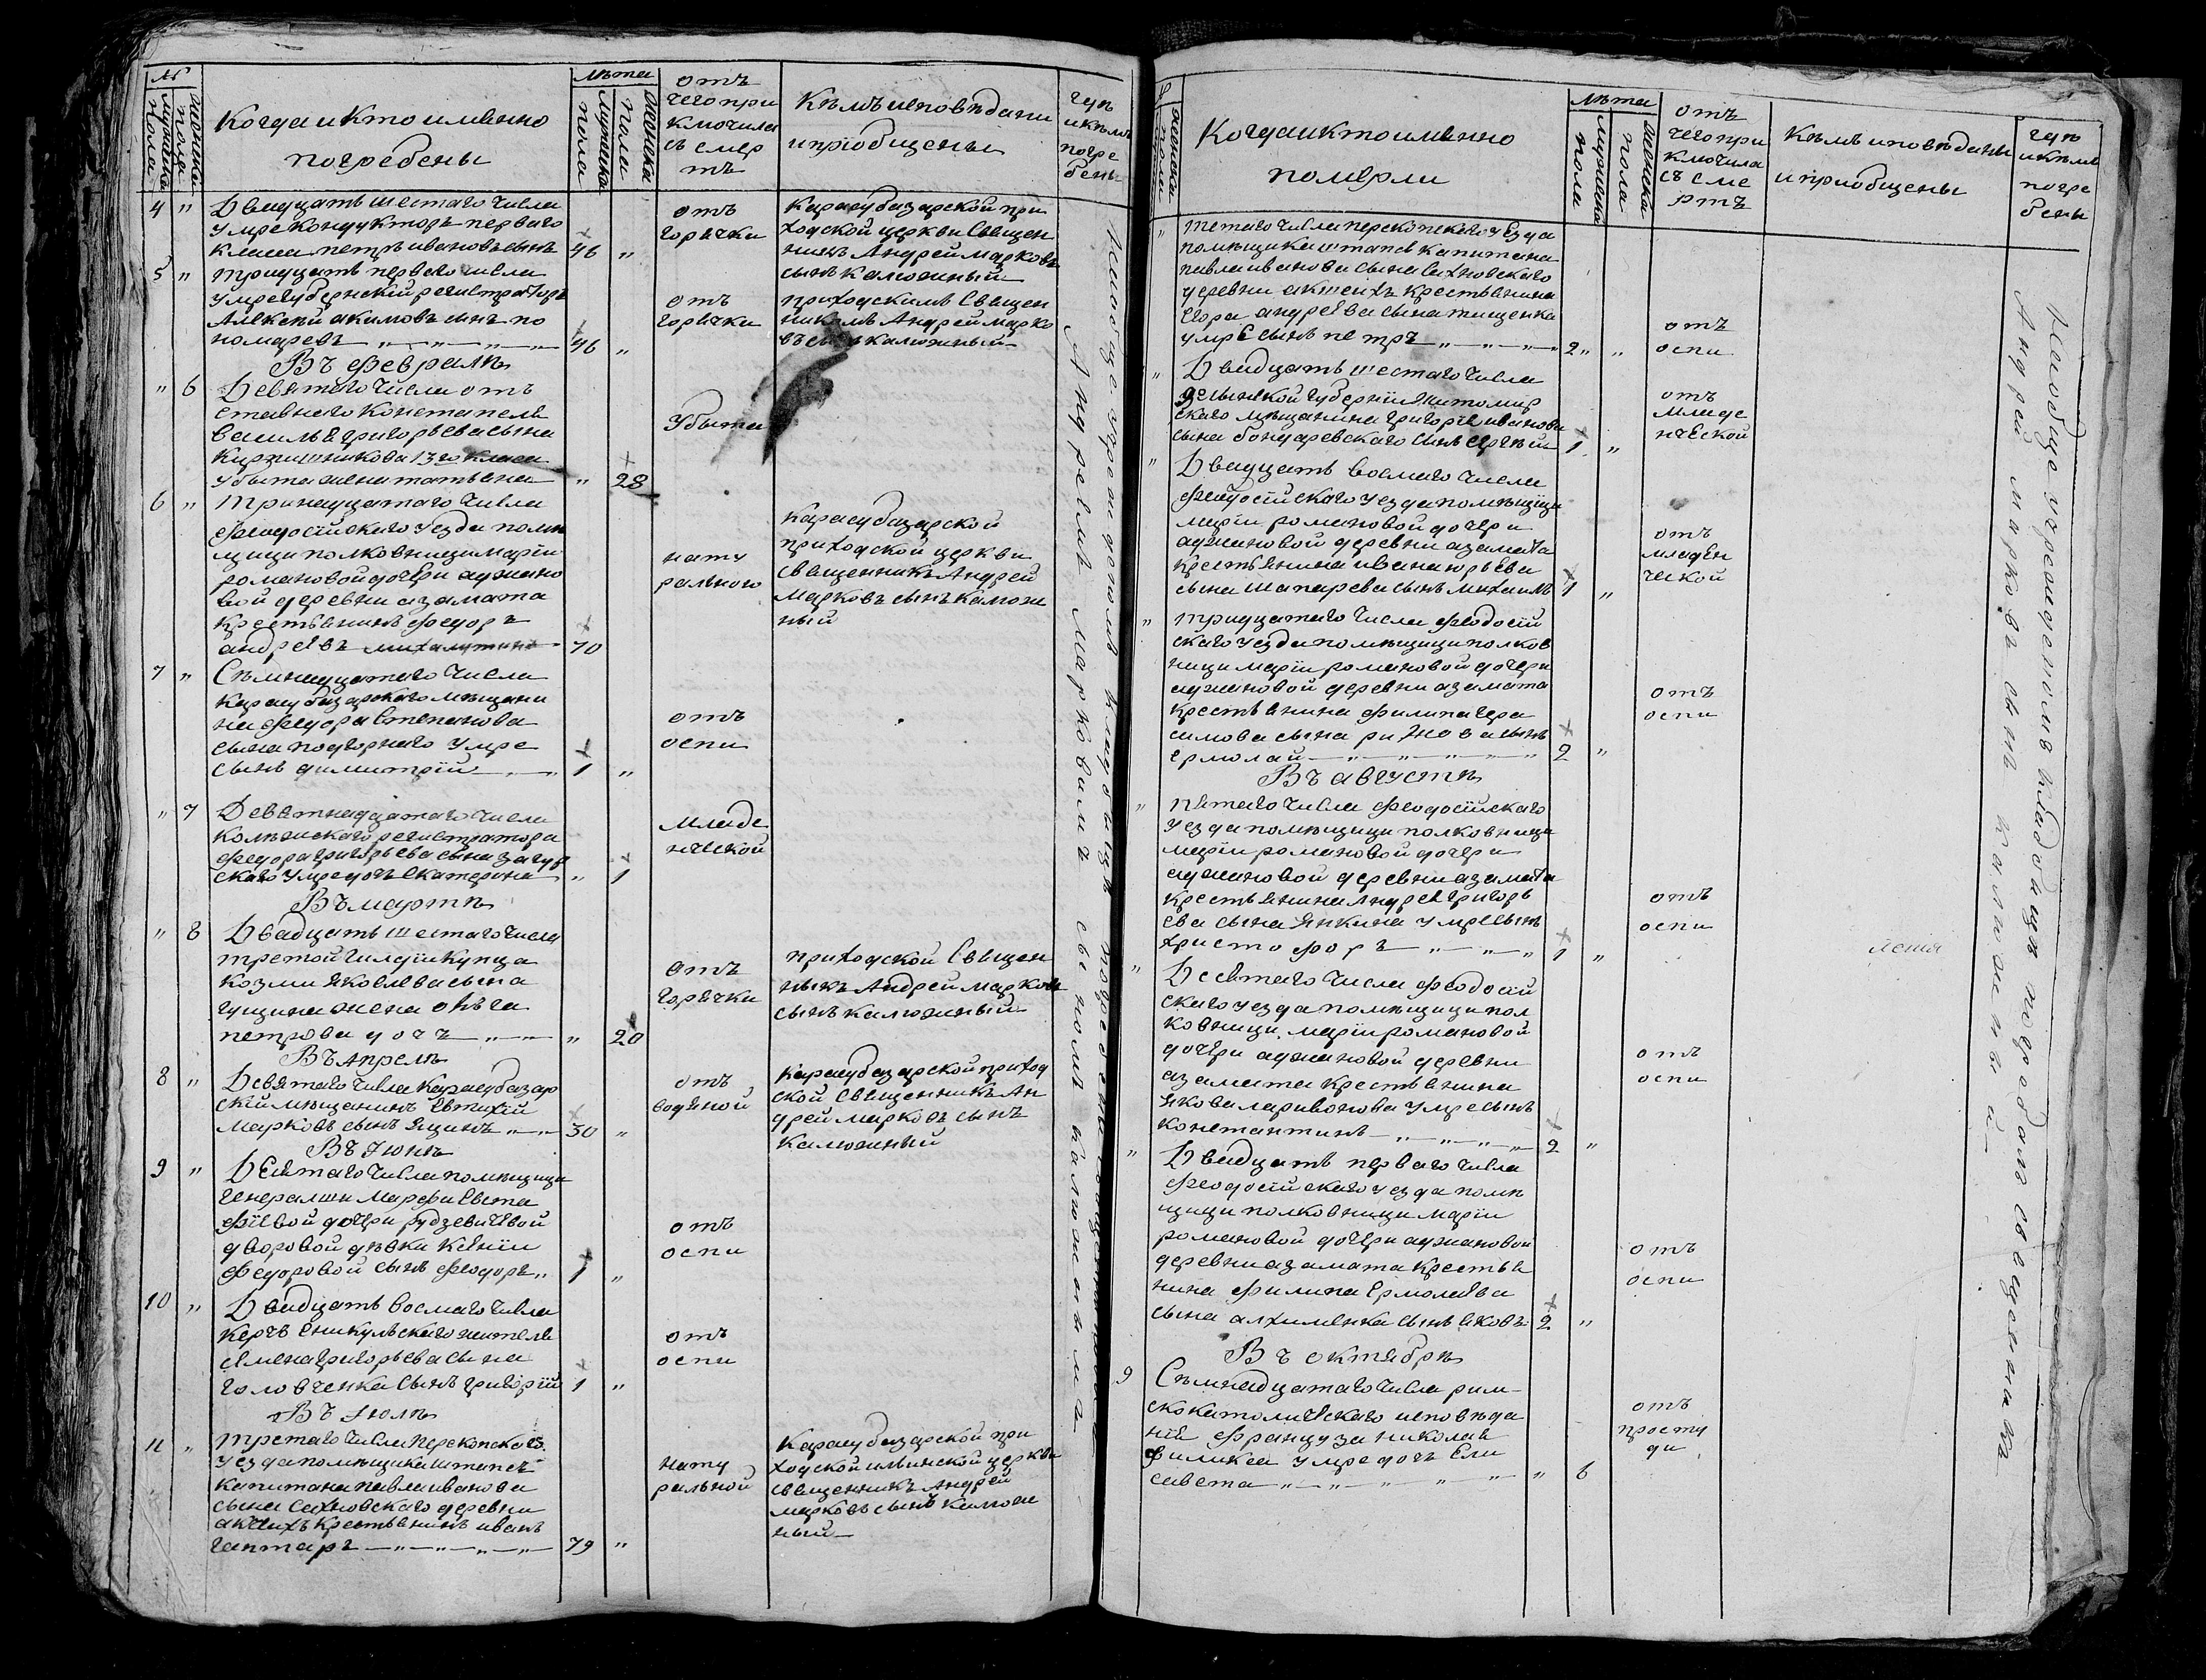 №
мужеска пола
женска пола
Когда и кто именно
погребены
лѣта
мужеска пола
женска пола
отъ
чего при
ключилас
съ смер
ть
Кѣмъ исповѣданы
и пріобщены
гдѣ
и кѣмъ
погре
бены
4 " Двадцать шестаго числа
умре кондукторъ перваго
класа петръ ивановъ сынъ 46 "
отъ
горячки
Карасубазарской при
ходской церкви Священ
никъ Андрей Марковъ
сынъ Калюжный
5 " тридцать перваго числа
умре губернскій регистраторъ
Алексѣй акимовъ сынъ по
номаревъ 46 "
отъ
горячки
приходскимъ Священ
никомъ Андрей Марко
въ сынъ калюжный
Въ февралѣ
" 6 Девятаго числа отъ
ставнего
василья григорьева сына
13го класа
убыта жена татьяна " 28
Убыта
6 " Тринадцатаго числа
феодосійскаго уезда помѣ
щици полковници маріи
романовой дочери аджано
вой деревни азамата
крестьянинъ федоръ
андреевъ 70
нату
рального
Карасубазарской
приходской церкви
священникъ Андрей
Марковъ сынъ Калюж
ный
7 " Семнадцатаго числа
Карасубазарскаго мѣщани
на Федора Степанова
сына подгорнаго умре
сынъ димитрій 1 "
отъ
оспи
" 7 Девятнадцатаго числа
колѣжскаго регистратора
федора григорьева сына загур
скаго умре дочь екатерина " 1
младе
нческой
Въ мартѣ
" 8 Двадцать шестаго числа
третой гилдіи купца
козми яковлева сына
гущина жена ольга
петрова дочъ " 20
отъ
горячки
приходской Священ
никъ Андрей Марковъ
сынъ калюжный
Въ Апрелѣ
8 " Девятаго числа карасубазар
скій мѣщанинъ евтихій
марковъ сынъ яцинъ 30 "
отъ
водяной
Карасубазарской приход
ской священникъ Ан
дрей марковъ сынъ
Калюжный
Въ Іюнѣ
9 " Девятаго числа помѣщици
генералши Марфи Евста
фіевой дочери рудзевичевой
дворовой дѣвки Ксеніи
федоровой сынъ феодоръ 1 "
отъ
оспи
10 " Двадцать восмаго числа
керчь еникульскаго жителя
семена григорьева сына
головченка сынъ григорій 1 "
отъ
оспи
Въ Іюлѣ
11 " третаго числа перекопскаго
уезда помѣщика штапсъ
капитана павла иванова
сына Сахновскаго деревни
акчихъ крестьянинъ иванъ
гаптаръ 79 "
нату
ральной
Карасубазарской при
ходской ильинской церкви
священникъ Андрей
марковъ сынъ калюж
ный
На общеучрежденомъ кладбищѣ погребены священникомъ
Андреемъ Марковимъ сыномъ Калюжнымъ
женска пола
Когда и кто именно
померли
лѣта
мужеска пола
женска пола
отъ
чего при
ключила
съ сме
рть
Кѣмъ исповѣданы
и пріобщены
гдѣ
и кѣмъ
погре
бены
" петаго числа перекопскаго уезда
помѣщика штапсъ капитана
павла иванова сына Сахновскаго
деревни акчихъ крестьянина
егора андреева сына тищенка
умре сынъ петръ 2 "
отъ
оспи
" Двадцать шестаго числа
волынской губерніи житомир
скаго мѣщанина григорія иванова
сына бондаревскаго сынъ сергѣй 1 "
отъ
младе
нческой
" Двадцать восмаго числа
феодосійскаго уезда помѣщици
маріи романовой дочери
аджановой деревни азамата
крестьянина ивана юрьева
сына шапарева сынъ михаилъ 1 "
отъ
младен
ческой
" тридцатаго числа феодосій
скаго уезда помѣщици полков
ници маріи романовой дочери
аджановой деревни азамата
крестьянина филипа гера
симова сына рижова сынъ
ермолай 2 "
отъ
оспи
Въ августѣ
" пятаго числа феодосійскаго
уезда помѣщици полковници
маріи романовой дочери
аджановой деревни азамата
крестьянина Андрея григорь
ева сына янкина умре сынъ
христофоръ 1 "
отъ
оспи
" Десятаго числа феодосій
скаго уезда помѣщици пол
ковници маріи романовой
дочери аджановой деревни
азамата крестьянина
якова ларивонова умре сынъ
константинъ 2 "
отъ
оспи
" Двадцать перваго числа
феодосійскаго уезда помѣ
щици полковници маріи
романовой дочери аджановой
деревни азамата крестья
нина филипа ермолаева
сына алхименка сынъ яковъ 2 "
отъ
оспи
Въ октябрѣ
9 Семнадцатаго числа рим
скокатолическаго исповѣда
нія француза николая
филикса умре дочь Ели
савета " 6
отъ
просту
ди
На общеучрежденомъ кладбищѣ погребалъ священникъ
Андрей марковъ сынъ калюжный